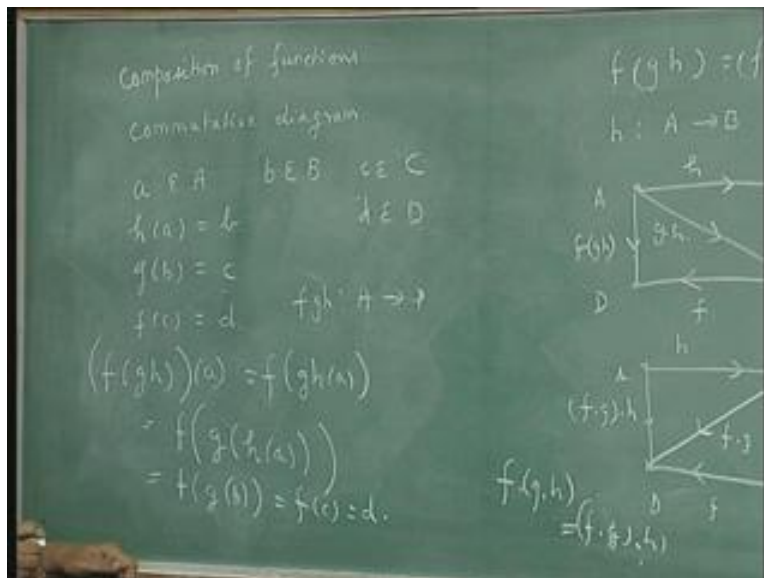 Composition of functions
Commutative diagram
a ε A b ε B c ε C
h(a) = b d ε D
g(b) = c
f(c) = d fgh : A → D
(f(gh))(a) = f(gh(a))
= f(g(h(a)))
= f(g(b)) = f(c) = d.
f(gh) = (f
h : A → B
h
A
f(gh)
gh
D
f
h
A
(f.g).h
f.g
D
f
f.(g.h)
= (f.g).h)